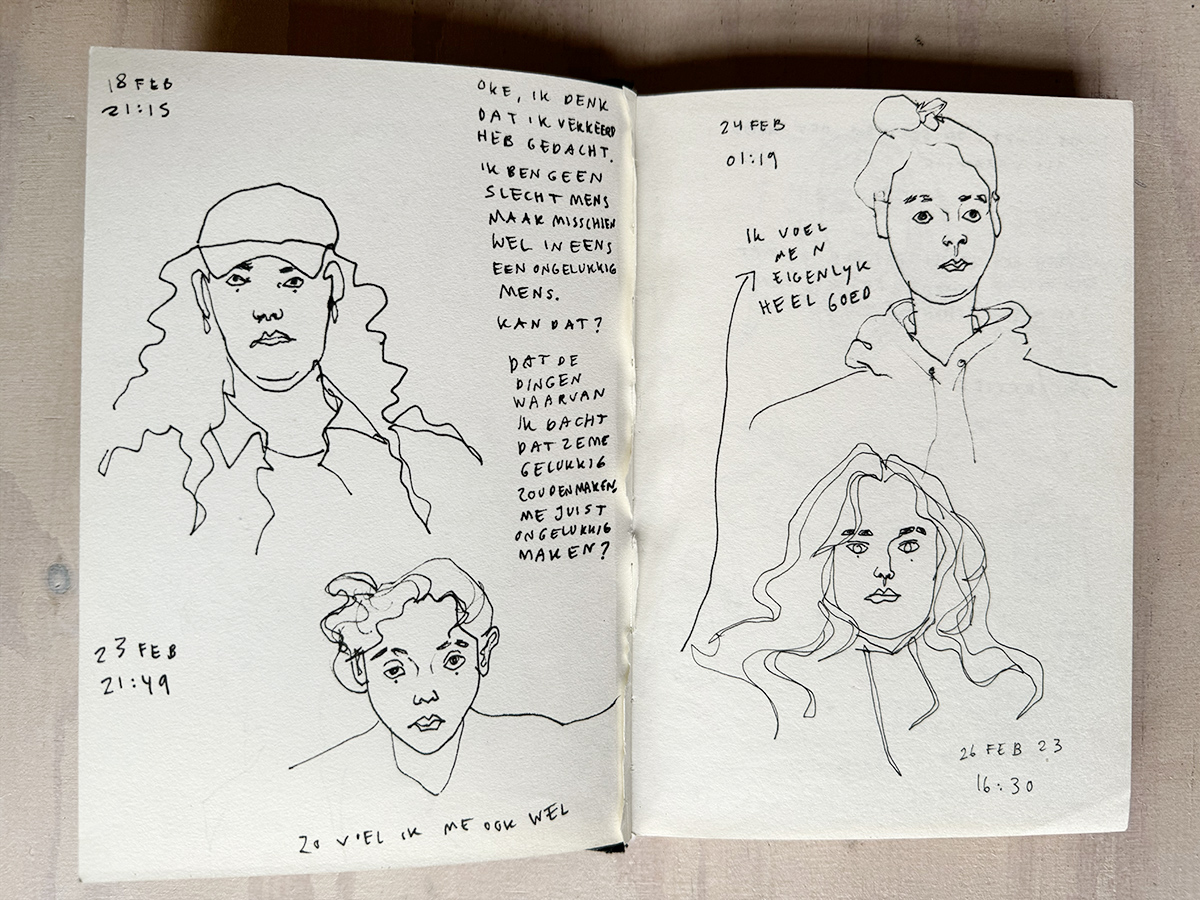 18 FEB
21:15
OKE, IK DENK
DAT IK VERKEERD
HEB GEDACHT.
IK BEN GEEN
SLECHT MENS
MAAR MISSCHIEN
WEL IN EENS
EEN ONGELUKKIG
MENS.
KAN DAT?
DAT DE
DINGEN
WAARVAN
IK DACHT
DAT ZE ME
GELUKKIG
ZOUDEN MAKEN,
ME JUIST
ONGELUKKIG
MAKEN?
23 FEB
21:49
ZO VOEL IK ME OOK WEL
24 FEB
01:19
IK VOEL
ME N
EIGENLYK
HEEL GOED
26 FEB 23
16:30